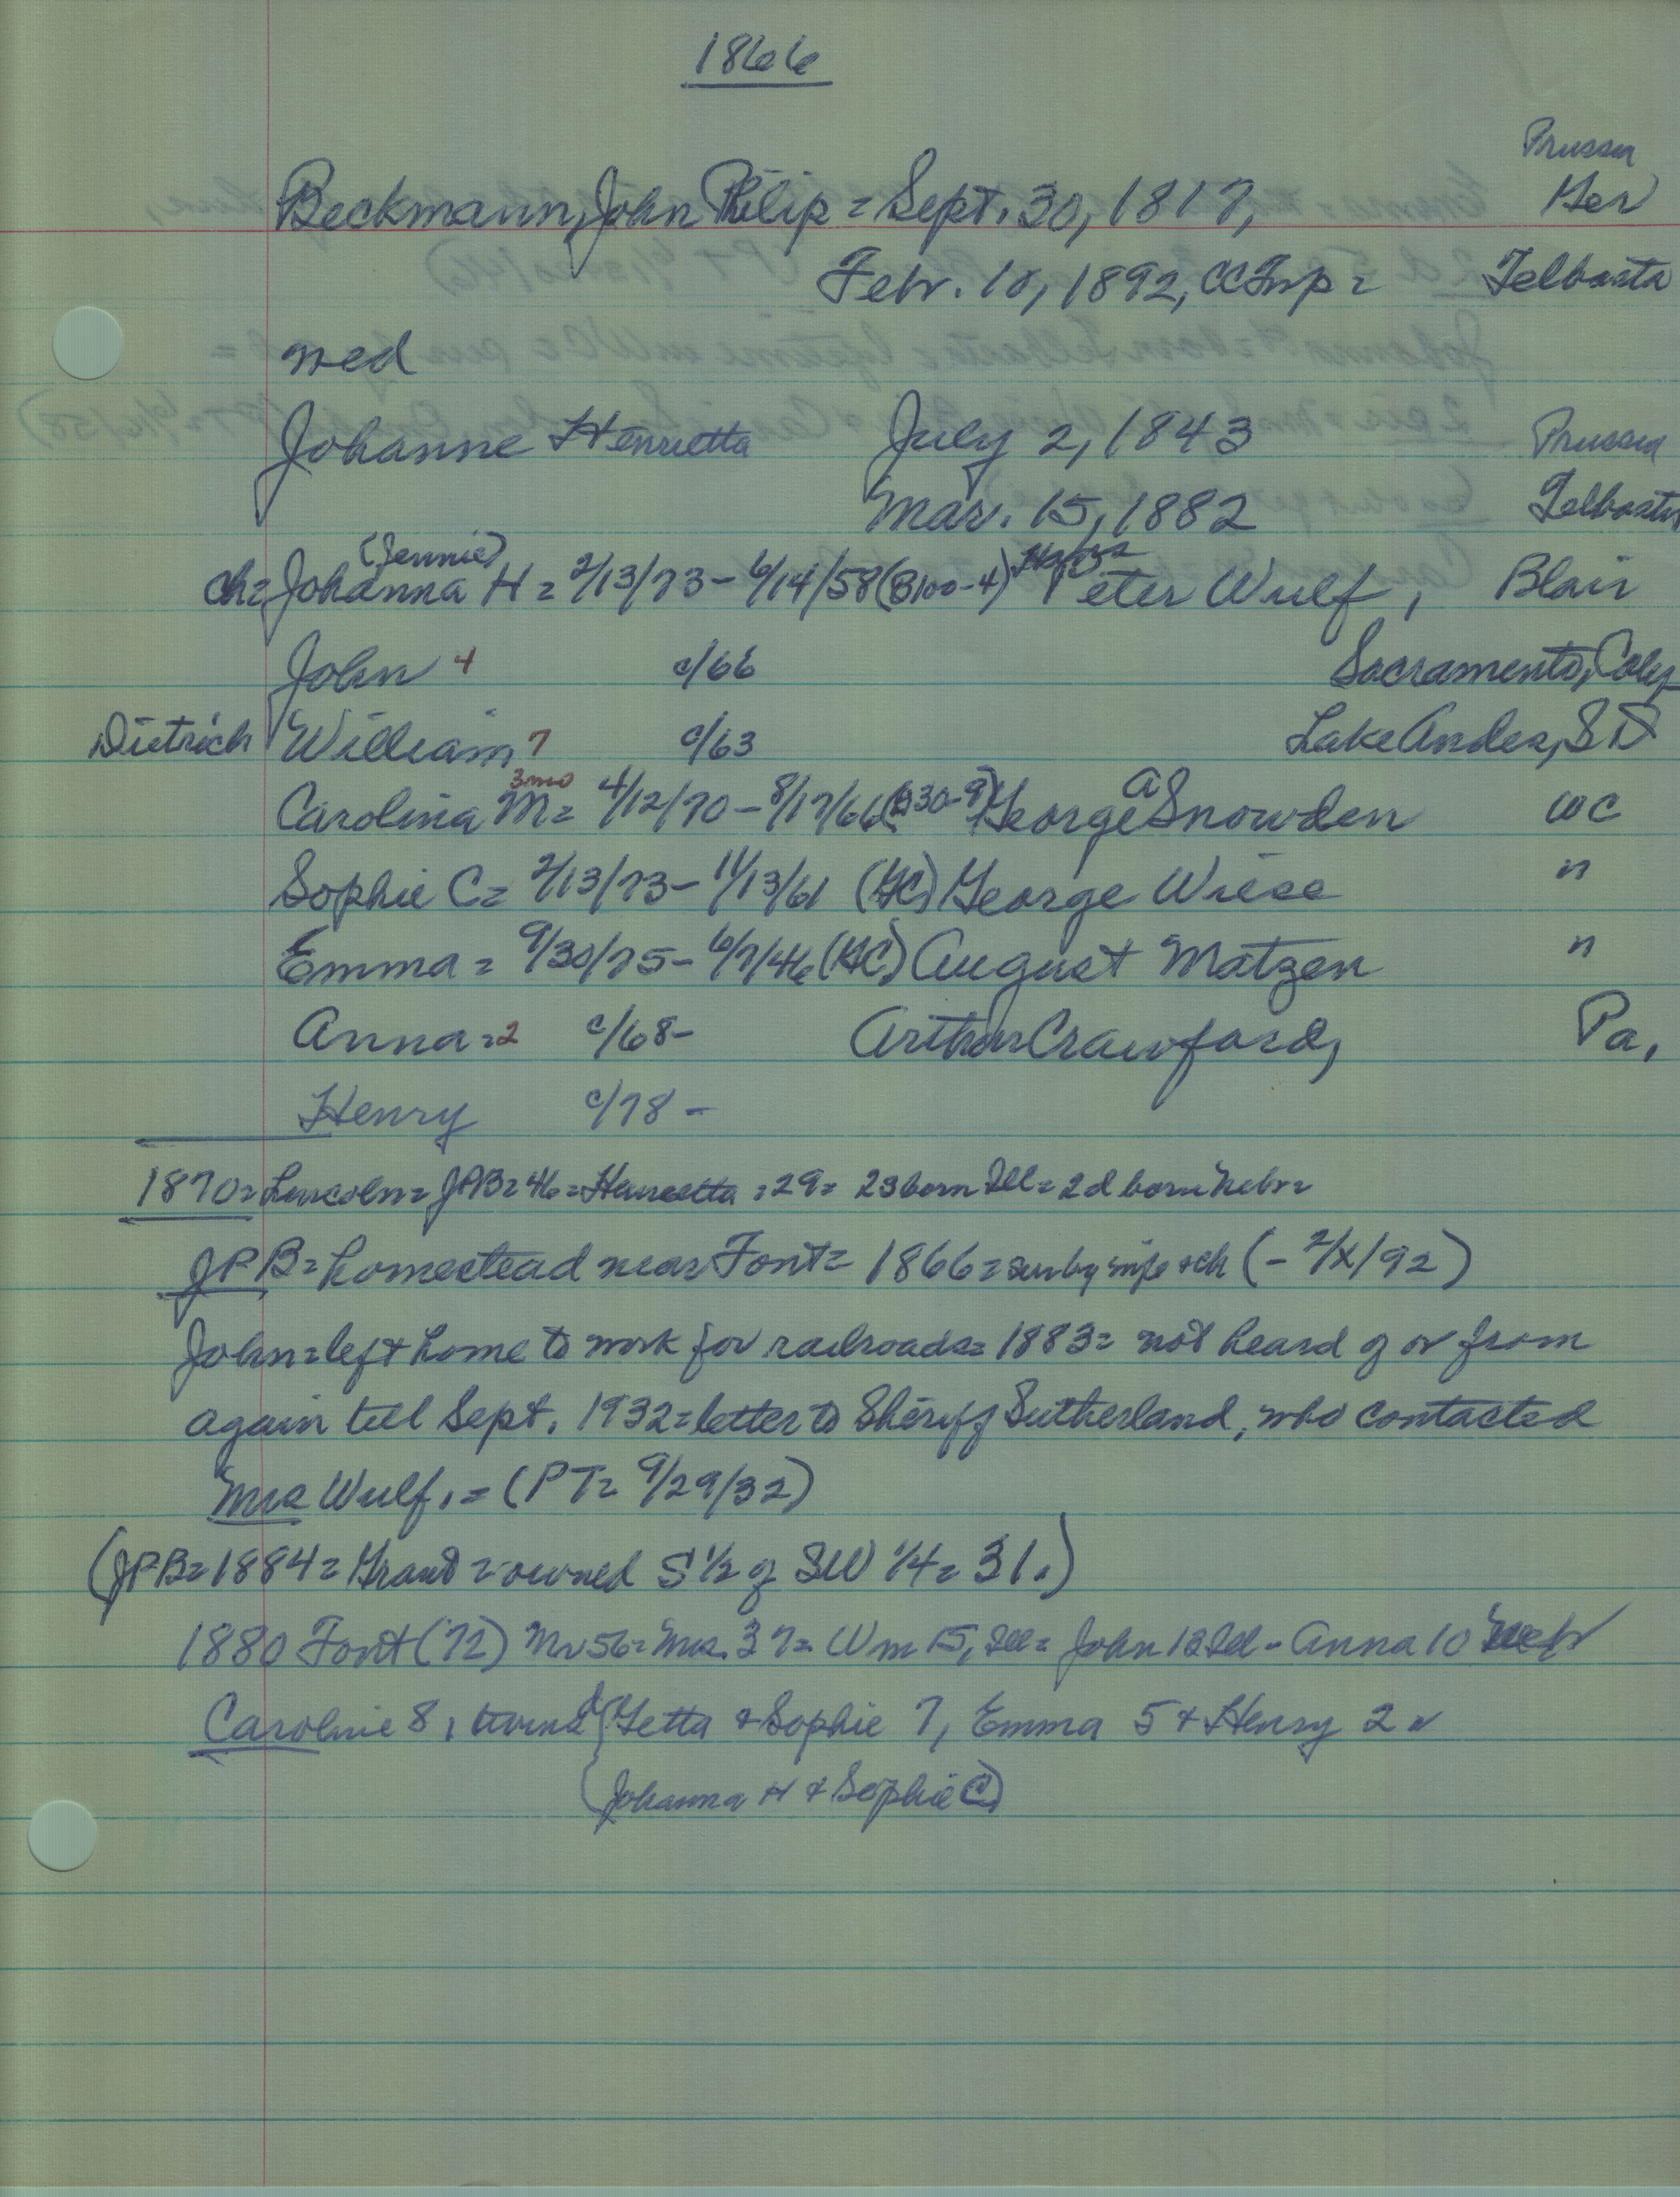 1866
Prussia
Beckmann, John Philip = Sept. 30, 1817, Ger
Febr. 10, 1892, CC Insp = Telbasta
wed
Johanne Henrietta July 2, 1843 Prussia
Mar. 15, 1882 Telbasta
(Jennie)
ch = Johanna H = 2/13/73 - 6/14/58 (B100-4) Peter Wulf, Blair
John 4 c/66 Sacramento, Calif
Dietrich William 7 c/63 Lake Andes, SD
3mo
Carolina M = 4/12/70 - 8/17/66 (B30-9) George A Snowden WC
Sophie C = 2/13/73 - 11/13/61 (KC) George Wiese "
Emma = 9/30/75 - 6/7/46 (KC) August Matzen "
Anna = 2 c/68 - Arthur Crawford, Pa.
Henry c/78 -
1870 = Lincoln = JPB = 46 = Henrietta = 29 = 2s born Ill = 2d born Nebr =
JPB = homestead near Font = 1866 = sur by wife + ch (- 2/X/92)
John = left home to work for railroads = 1883 = not heard of or from
again till Sept. 1932 = letter to Sheriff Sutherland, who contacted
Mrs Wulf. = (PT = 9/29/32)
(JPB = 1884 = Grant = owned S 1/2 of SW 1/4 = 31.)
1880 Font (72) Mr 56 = Mrs. 37 = Wm 15, Ill = John 12 Ill - Anna 10
Caroline 8, twins {Getta & Sophie 7, Emma 5 + Henry 2
(Johanna H + Sophie C)